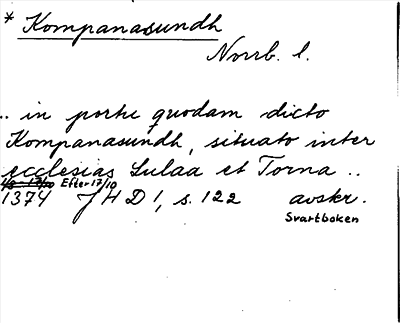 * Kompanasundh
Norrb. l.
.. in portu quodam dicto
Kompanasundh, situato inter
ecclesias Lulaa et Torna ..
Efter 17/10
1374 JHD 1, s. 122 avskr.
Svartboken